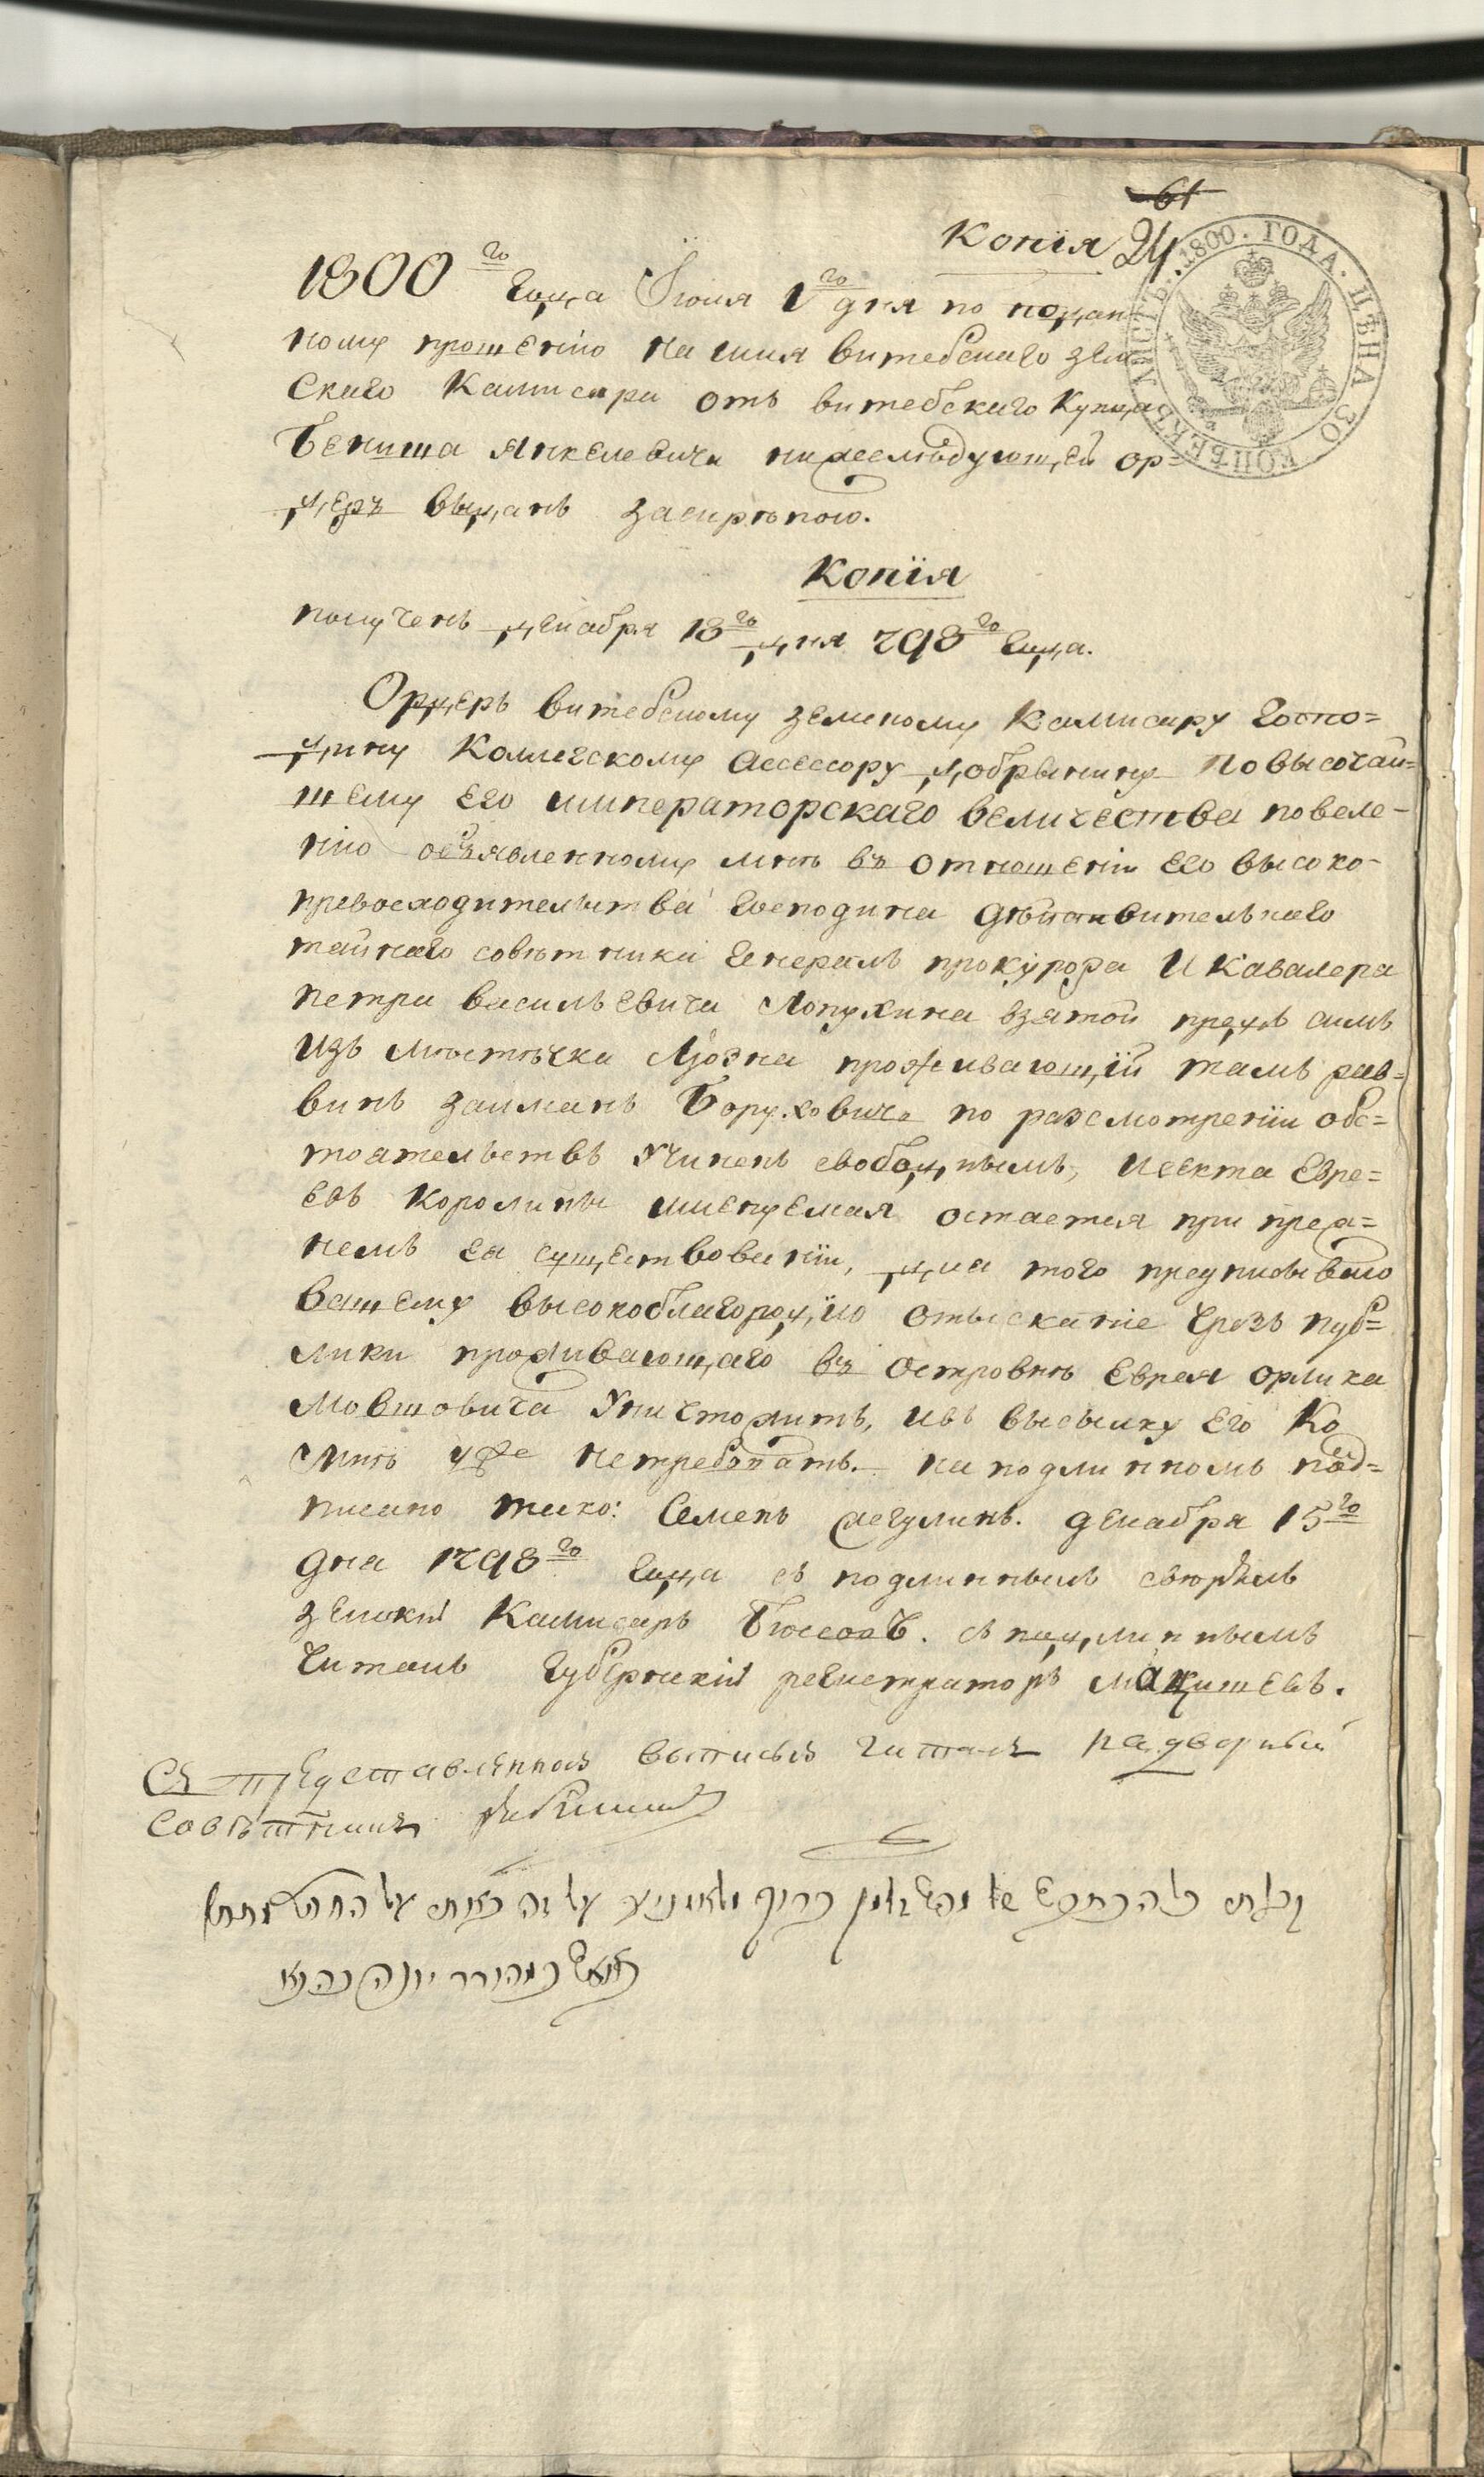 61
Копїя 24
1800го года Июня 1го дня по подан=
ному прошенїю на имя витебскаго зем
скаго Камисара отъ витебскаго Купца
Бениша Янкелевича нижеслѣдующей ор=
деръ выданъ заскрѣпою.
1800. ГОДА. ЦѢНА 30 КОПѢЕКЪ ЛИСТЪ.
Копїя
полученъ декабря 18го дня 798го года.
Ордеръ витебскому земскому Камисару госпо=
дину Колегскому Асессору Добрынину Повысочай=
шему Его императорскаго величества повеле-
нїю объявленному мнѣ въ отношенїи Его высоко-
превосходительства господина дѣйствительнаго
тайнаго совѣтника генералъ прокурора И Кавалера
петра васильевича Лопухина взятой предъ симъ
Изъ мѣстечка Лїозна проживающїй тамъ рав=
винъ залманъ Боруховичъ по разсмотренїи обс=
тоятельствъ Учиненъ свободнымъ, Исекта Евре=
евъ Каролины именуемая остается при преж=
немъ ея существованїи, для того предписываю
вашему высокоблагородїю отысканїе чрезъ пуб=
лики проживающаго въ Островнѣ Еврея орлика
Мовшовича Уничтожить, ивъ высылку Его Ко
Мнѣ уже нетребовать. на подлинномъ под=
писано тако: Семенъ жегулинъ. декабря 15го
дна 1798го года съ подлиннымъ свѣрялъ
земскїй Камисаръ. съ подлиннымъ
Читалъ Губернскїй регистраторъ.
Съ представленной выписью читалъ надворный
совѣтникъ